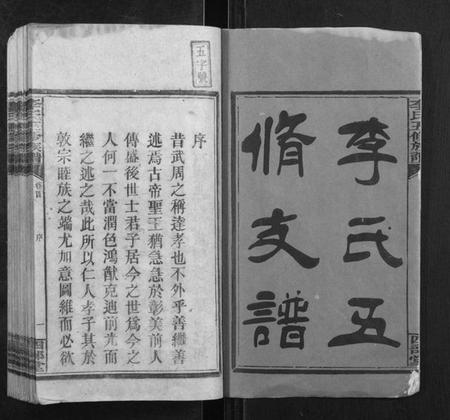 李氏五
脩支譜
五字號
序
昔武周之稱達孝也不外乎善繼善
述焉古帝聖王猶急急於彰美前人
傳盛後世士君子居今之世爲今之
人何一不當潤色鴻猷克迪前光而
繼之述之哉此所以仁人孝子其於
敦宗睦族之端尤加意圖維而必欲
卷首
序
一
李氏五修族譜